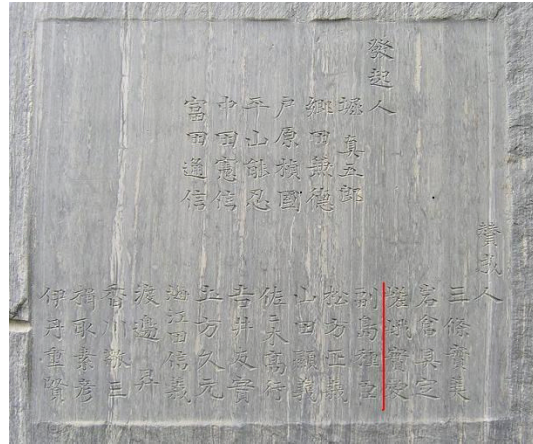 發起人
堀 真五郎
郷田兼徳
戸原禎國
平山能忍
中田憲信
富田通信
賛成人
三條實美
岩倉具定
嵯峨實愛
副島種臣
松方正義
山田顯義
佐々木高行
吉井友實
土方久元
海江田信義
渡邉 昇
香川敬三
楫取素彦
伊丹重賢